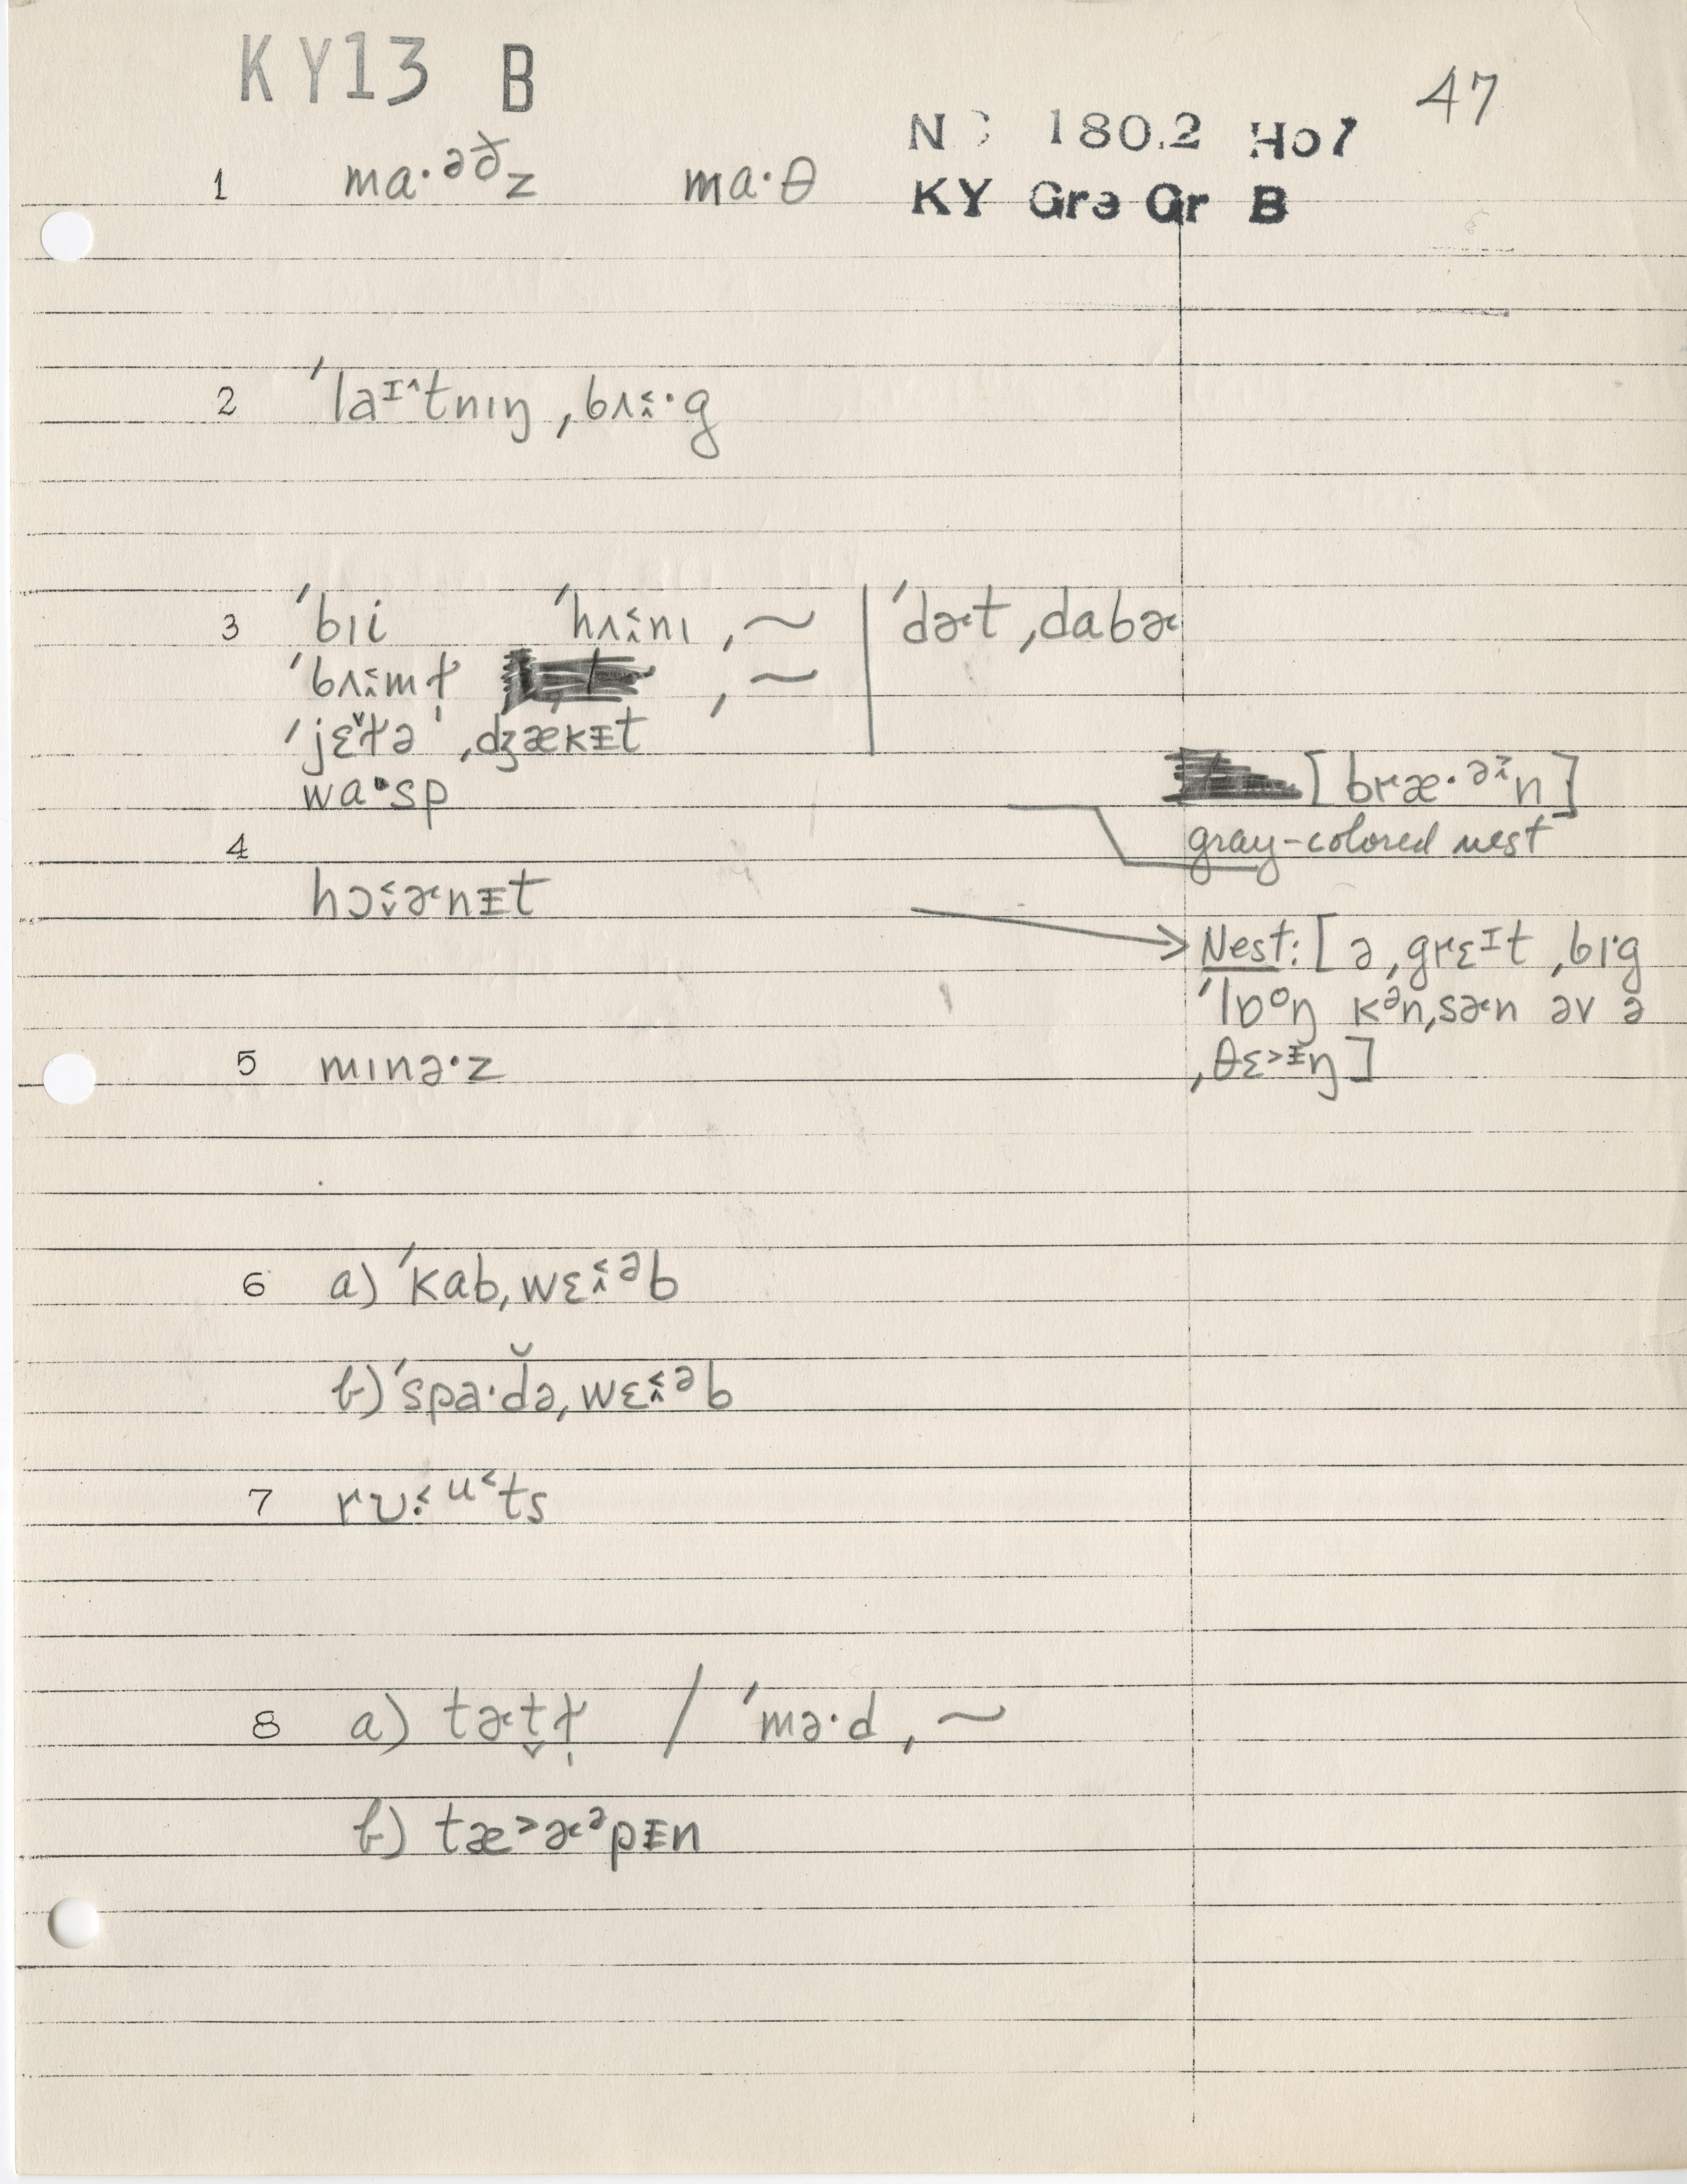 KY13 B
47
N C 180.2 Hol
KY Grə Gr B
1 ma·ᵊð̆z ma·θ
2 ˈlaɪ^tnɪŋ ˌbʌ˂̭·g
3 ˈbɪi ˈhʌ˂̭nɪ ˌ~ | ˈdɚt ˌdabɚ
ˈbʌ˂̭mɫ̩ ˌ~
ˈjɛ̌ɫə ˌdʒækᵻt
wa·sp
[bræ·ᵊ˃̭n]
gray-colored nest
4
hɔ˂̬ɚnᵻt
Nest: [ə ˌgrɛᶦt ˌbɪ·g
ˈlɒᵒŋ kᵊnˌsɚn əv ə
ˌθɛ˃ᵻŋ]
5 mɪnə·z
6 a) ˈkab ˌwɛ˂̭ᵊb
b) ˈspa·d̆ə ˌwɛ˂̭ᵊb
7 rʊ˂̣ᵘ˂ts
8 a) tɚt̬ɫ̩ / ˈmə·d ˌ~
b) tæ˃ɚᵊpᵻn